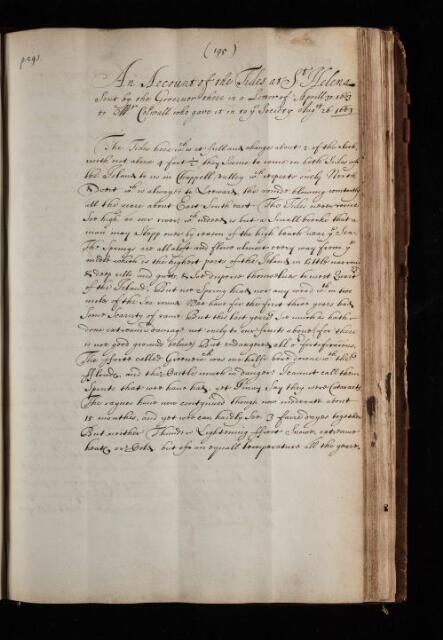 p. 291.
(195)
An Account of the Tides at St Helena
Sent by the Governor there in a Letter of Aprill 30 1683
to Mr who gave it in to ye Society Augst 26 1683
The Tides here wth us at full and change about 2 of the clock,
with not above 4 foot ½ they Seeme to come in both Sides of
the Island to us in Chappell valley wch respects only North
& West wch is always to Leeward, the winds blowing constantly
all the yeare about East South East. The Tides never come
Soe high as our river wch indeed is but a Small brooke that a
man may Stepp over by reason of the high beach near ye Sea
The Springs are all aloft and flow almost every way from ye
middle which is the highest parts of the Island in little narrow
& deep rills and guts, & Soe disperse themselves to most Quarters
of the Island But noe Spring head nor any wood wthin two
miles of the Sea round. Wee have for the first three years had
Some Scarcity of raine But this last yeare Soe much as hath
done extreame damage not only to our fruits about (for there
is not good ground below) But endangered all ye fortifications.
The called wch was one halfe broad downe wth the
Floods, and this Castle much in danger I cannot call them
Spouts that wee have had, yet many Say they were Cataracts
The raynes have now continued though now moderate about
15 monthes, and yet wee can hardly See 3 faire dayes together
But neither Thunder Lightening Snow, extreame
heate or Cold but of an equall temperature all the yeare.